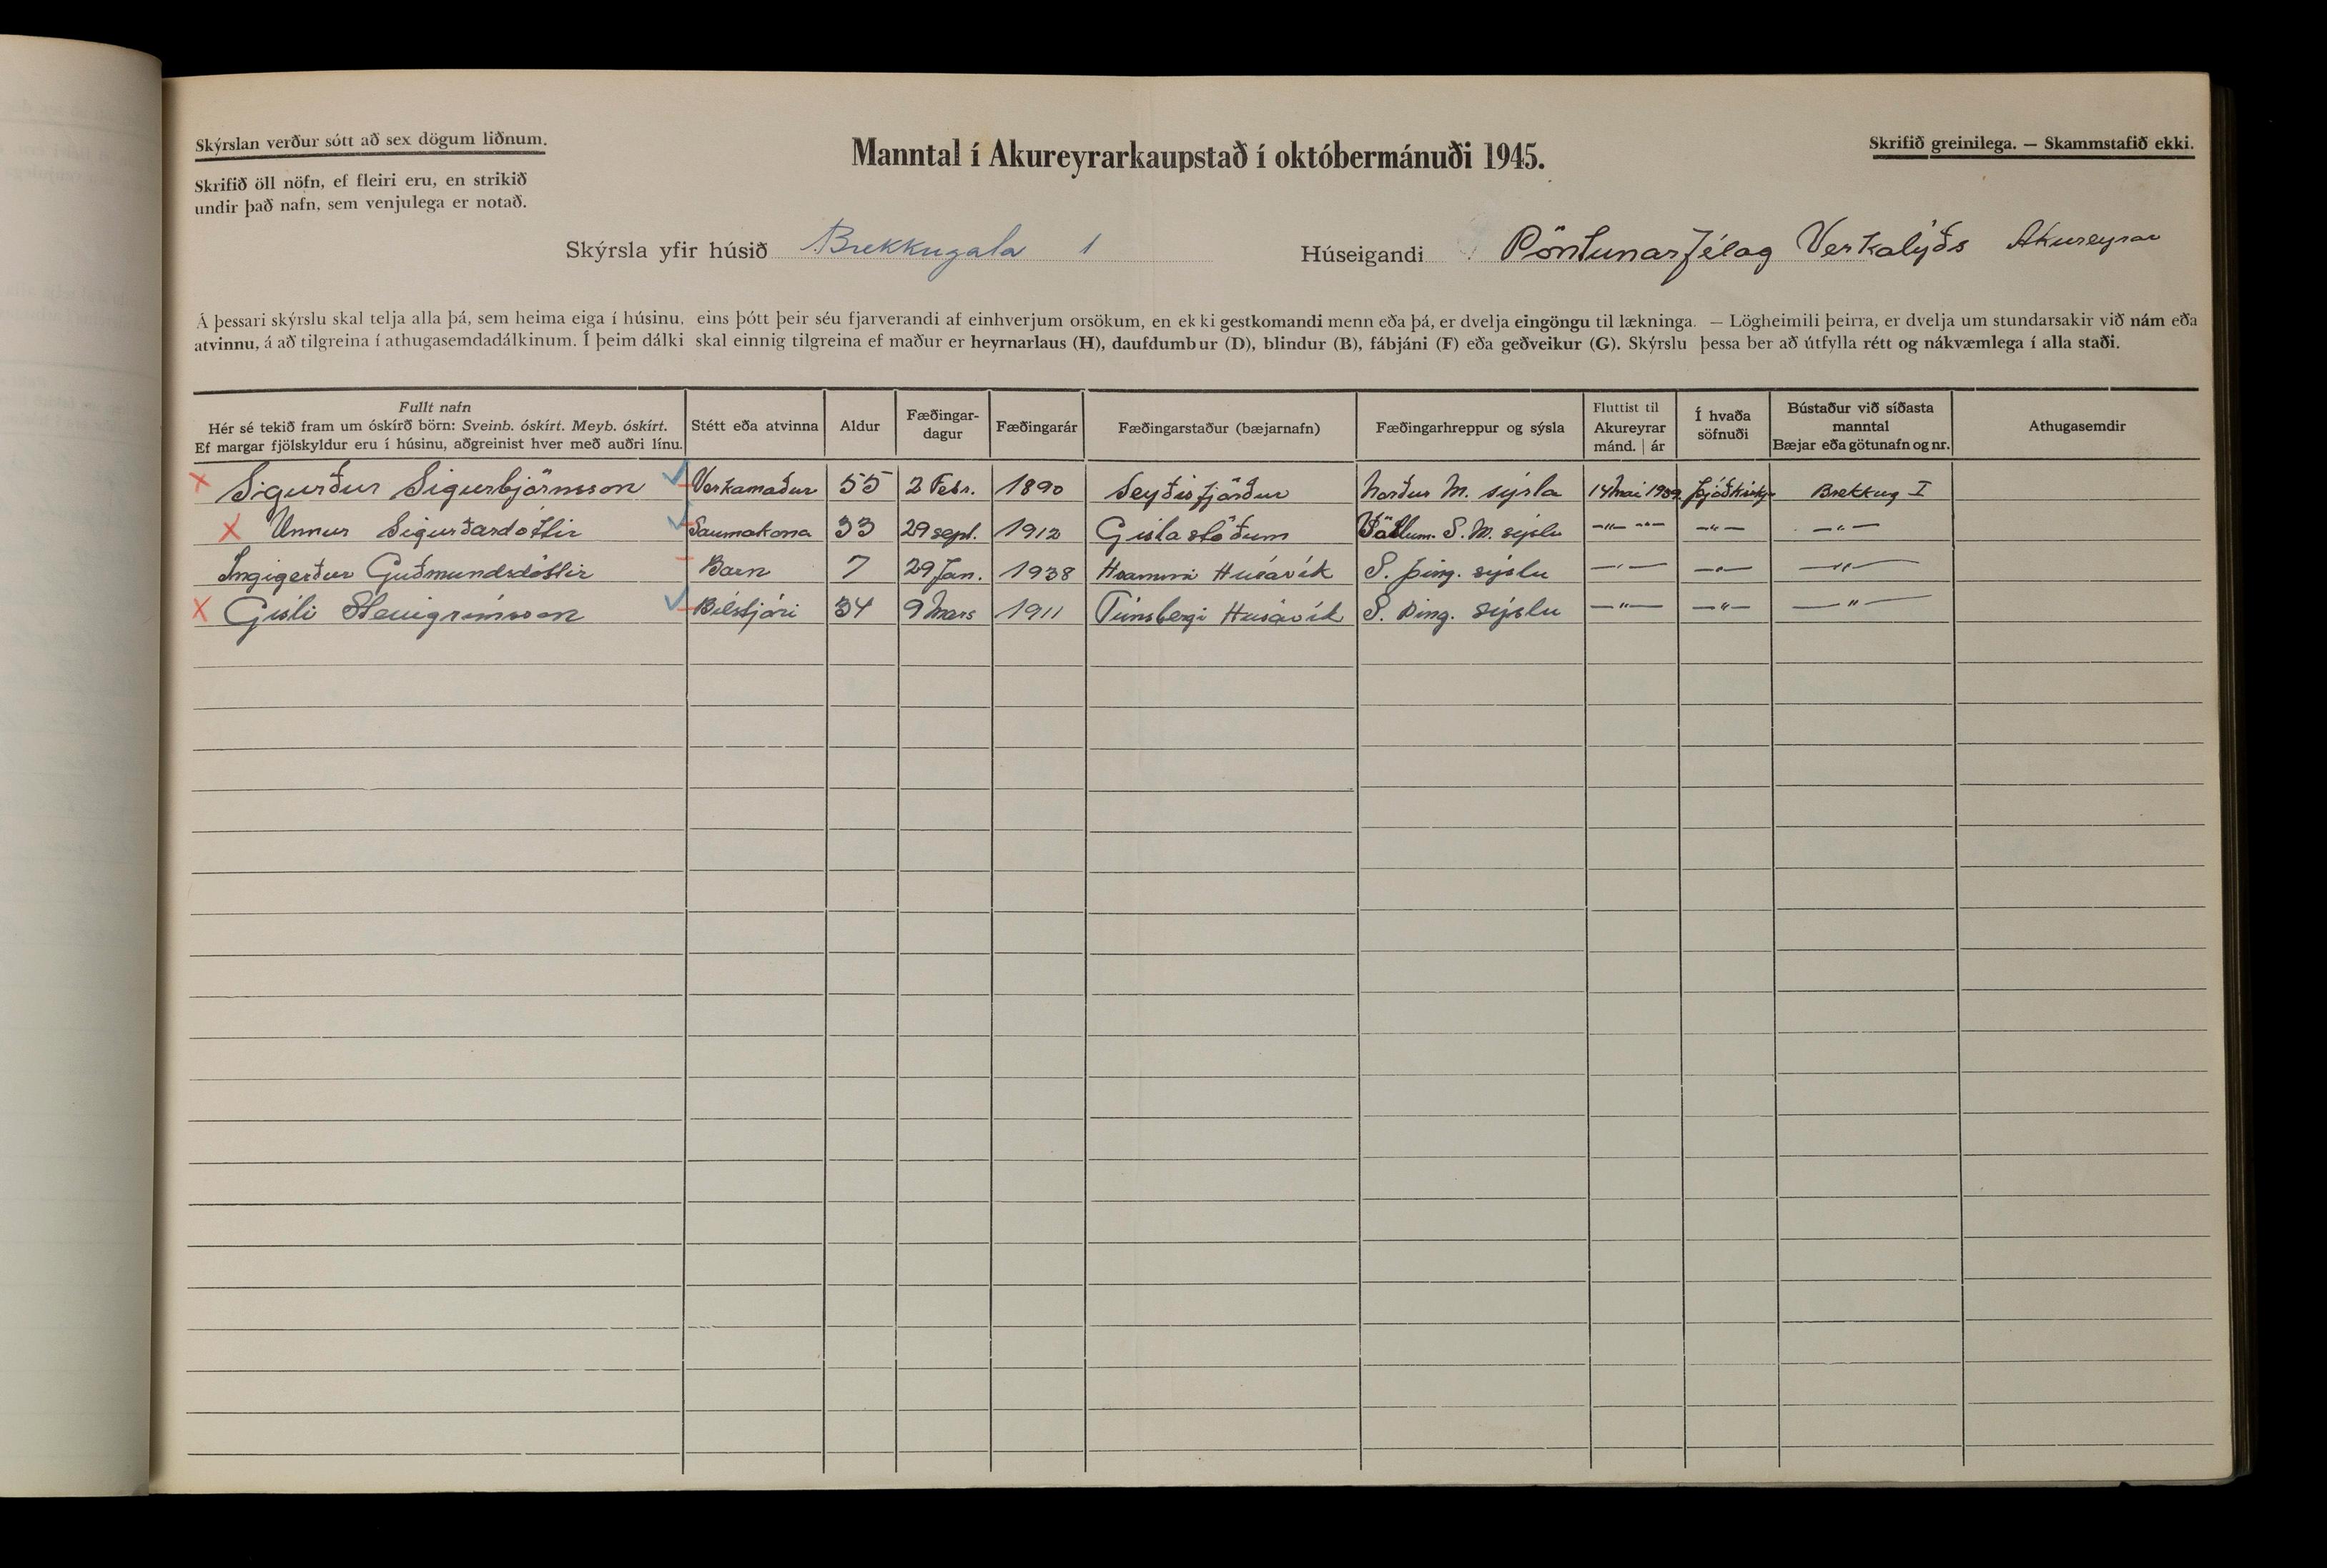 Skýrslan verður sótt að sex dögum liðnum.
Skrifið öll nöfn, ef fleiri eru, en strikið
undir það nafn, sem venjulega er notað.
Manntal í Akureyrarkaupstað í októbermánuði 1945.
Skrifið greinilega. — Skammstafið ekki.
Skýrsla yfir húsið Brekkugata 1
Húseigandi Pöntunarfélag Verkalýðs Akureyrar
Á þessari skýrslu skal telja alla þá, sem heima eiga í húsinu, eins þótt þeir séu fjarverandi af einhverjum orsökum, en ekki gestkomandi menn eða þá, er dvelja eingöngu til lækninga. — Lögheimili þeirra, er dvelja um stundarsakir við nám eða
atvinnu, á að tilgreina í athugasemdadálkinum. Í þeim dálki skal einnig tilgreina ef maður er heyrnarlaus (H), daufdumbur (D), blindur (B), fábjáni (F) eða geðveikur (G). Skýrslu þessa ber að útfylla rétt og nákvæmlega í alla staði.
Fullt nafn
Hér sé tekið fram um óskírð börn: Sveinb. óskírt. Meyb. óskírt.
Ef margar fjölskyldur eru í húsinu, aðgreinist hver með auðri línu.
Stétt eða atvinna
Aldur
Fæðingar-
dagur
Fæðingarár
Fæðingarstaður (bæjarnafn)
Fæðingarhreppur og sýsla
Fluttist til
Akureyrar
mánd. | ár
Í hvaða
söfnuði
Bústaður við síðasta
manntal
Bæjar eða götunafn og nr.
Athugasemdir
Sigurður Sigurbjörnsson Verkamaður 55 2 Febr. 1890 Seyðisfjörður Norður M. sýsla 14 Mai 1939 Þjóðkirkj Brekkug I
Unnur Sigurðardóttir Saumakona 33 29 sept. 1912 Gislastöðum Völlum. S. M. sýslu —"— —"— —"— —"—
Ingigerður Guðmundsdóttir Barn 7 29 Jan. 1938 Hvammi Húsavík S. þing. sýslu —"— —"— —"—
Gísli Steingrímsson Bílstjóri 34 9 Mars 1911 Túnsbergi Húsavík S. Þing. sýslu —"— —"— —"—